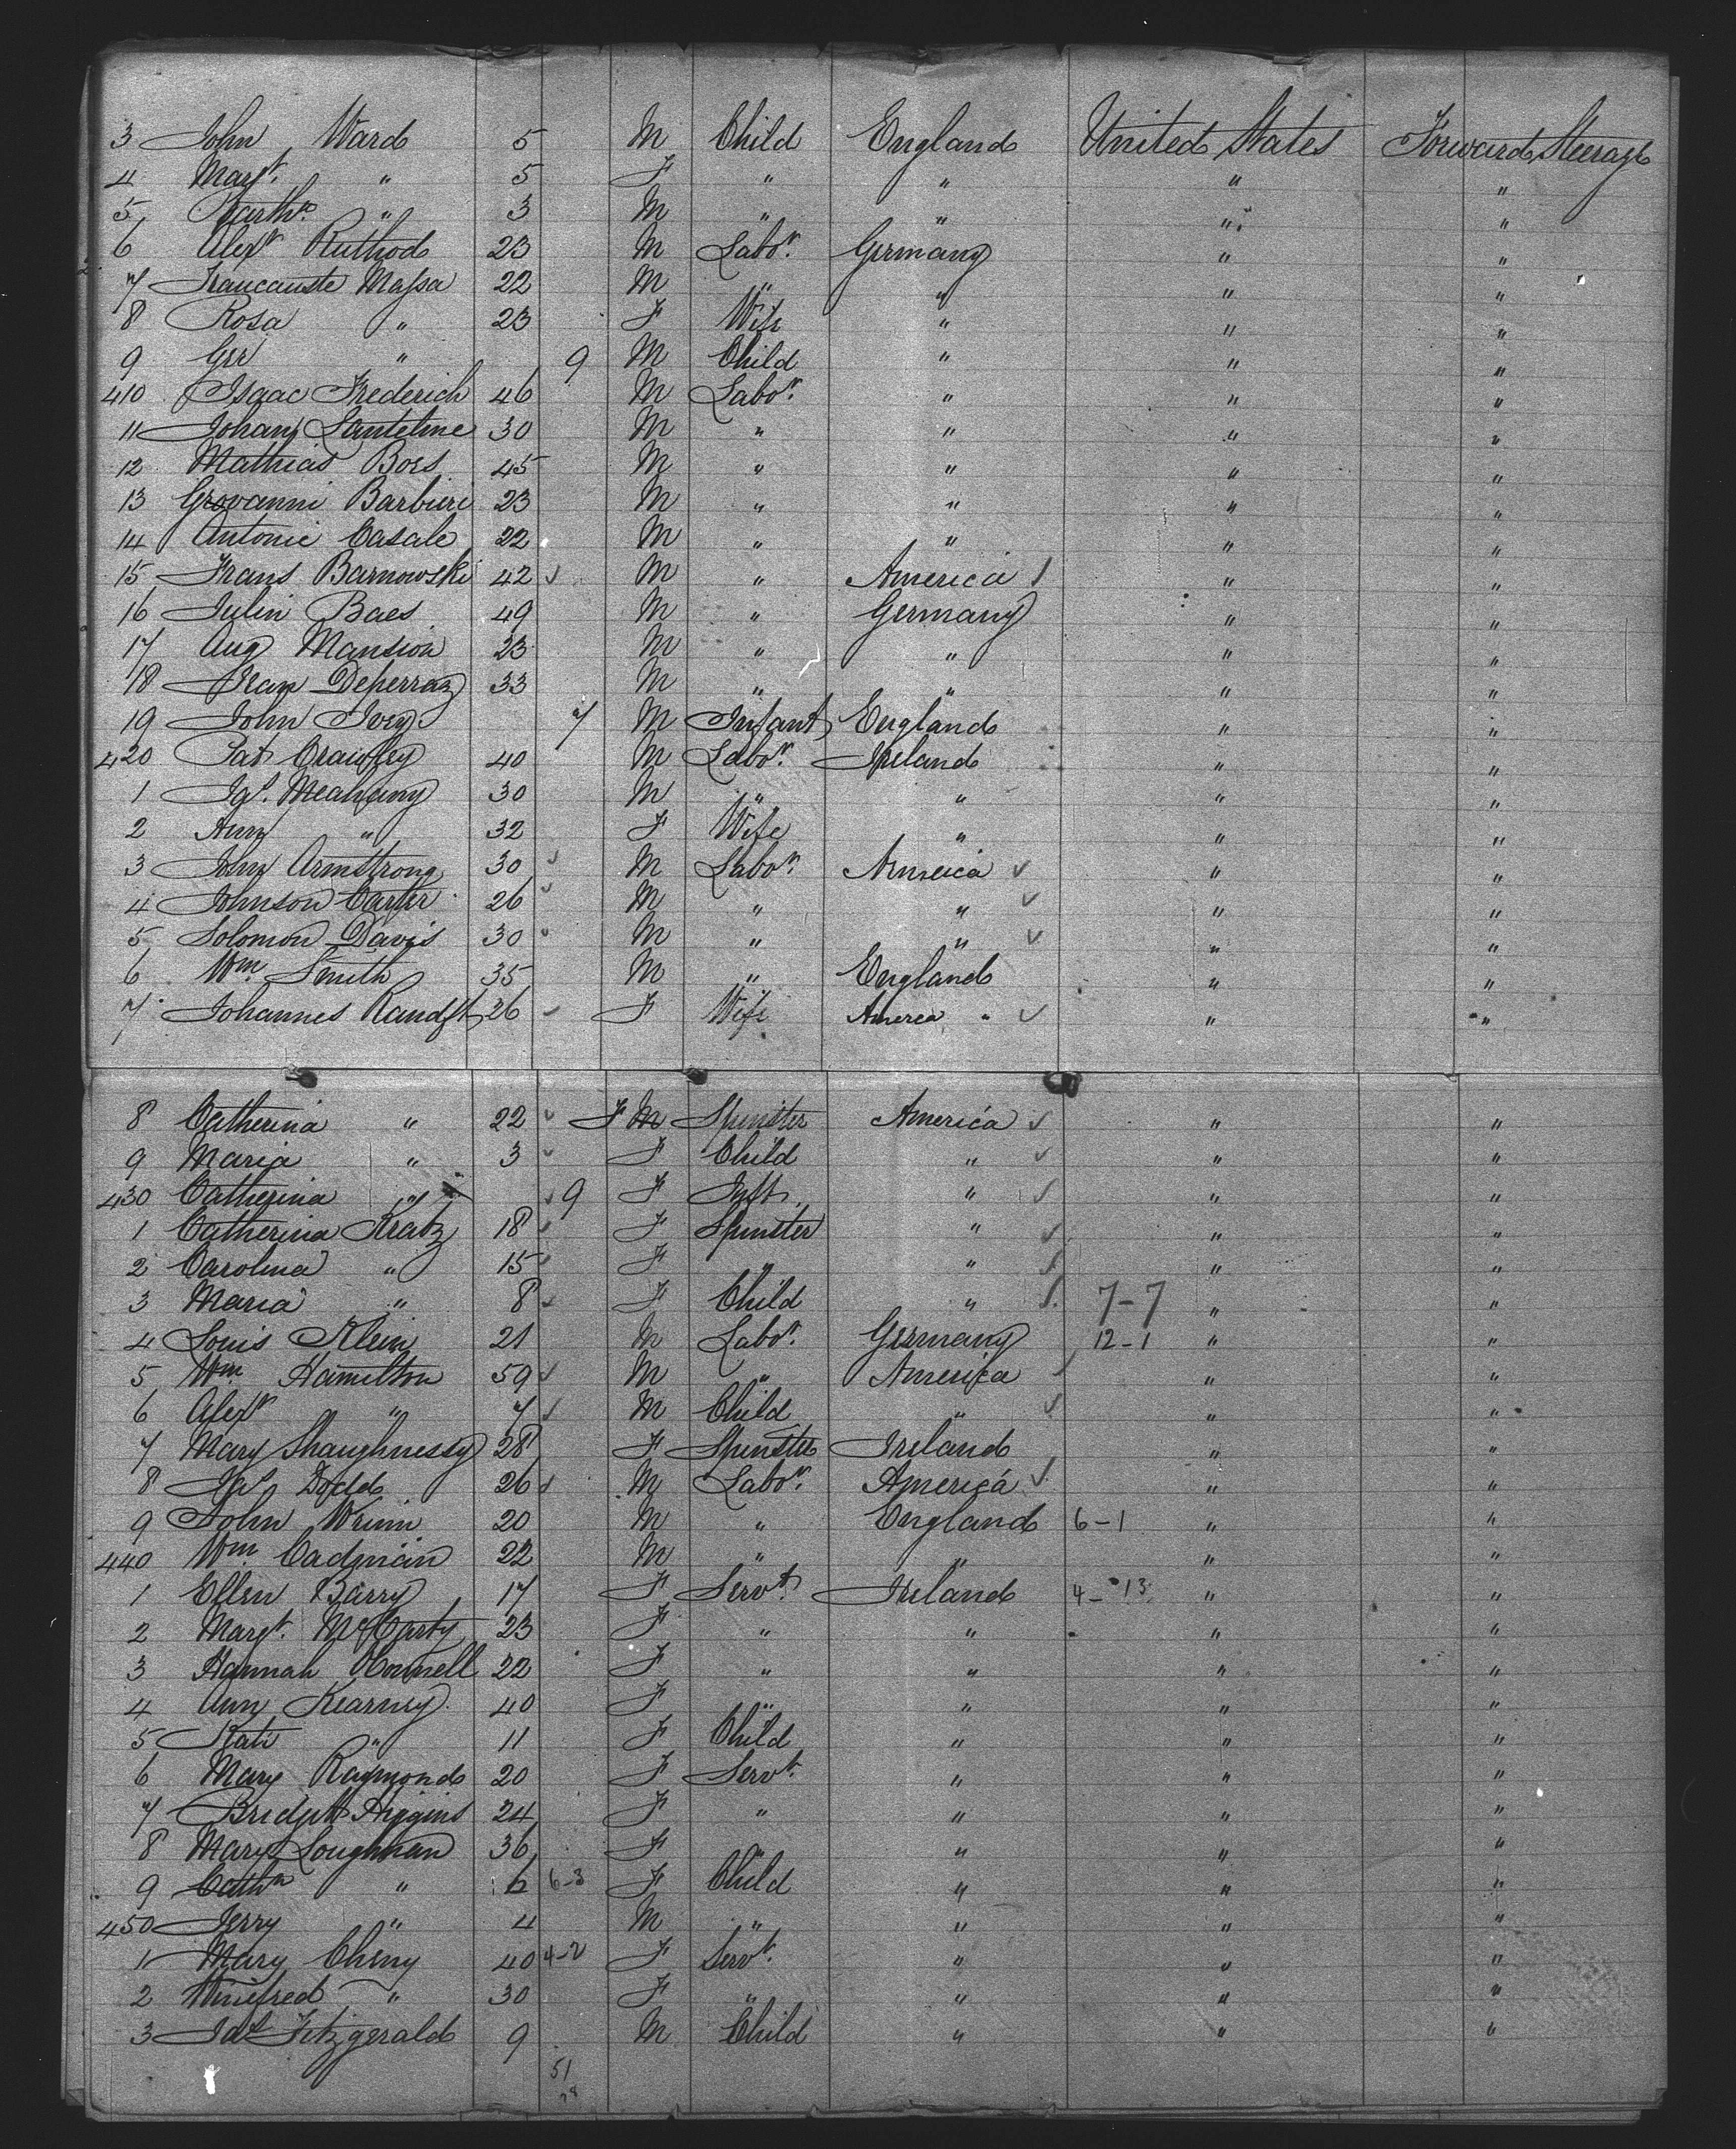 3 John Ward 5 M Child England United States Forward Steerage
4 Margt. " 5 F " " " "
5 Barthw. " 3 M " " " "
6 Alexr Ruthod 23 M Labor. Germany " "
7 Massa 22 M " " " "
8 Rosa " 23 F Wife " " "
9 " 9 M Child " " "
410 Isaac Frederich 46 M Labor. " " "
11 Johann 30 M " " " "
12 Mathias Boes 45 M " " " "
13 Giovanni Barbieri 23 M " " " "
14 Antonie Casale 22 M " " " "
15 Frans Barnowski 42 M " America " "
16 Julin Baes 49 M " Germany " "
17 Aug Mansion 23 M " " " "
18 Jean Deperraz 33 M " " " "
19 John Ivey 7 M Infant England " "
420 Pat Crawley 40 M Labor. Ireland " "
1 Jas. Meahany 30 M " " " "
2 Ann " 32 F Wife " " "
3 John Armstrong 30 M Labor. America " "
4 Johnson Carter 26 M " " " "
5 Solomon Davis 30 M " " " "
6 Wm Smith 35 M " England " "
7 Johannes 36 F Wife America " " "
8 Catherina " 22 F M Spinster America " "
9 Maria " 3 F Child " " "
430 Catherina " 9 F Inft. " " "
1 Catherina Kratz 18 F Spinster " " "
2 Carolina " 15 F " " " "
3 Maria " 8 F Child " 7-7 " "
4 Louis Klein 21 M Labor. Germany 12-1 " "
5 Wm Hamilton 59 M " America " "
6 Alexr " 7 M Child " " "
7 Mary Shaughnessy 28 F Spinster Ireland " "
8 Jas Dodd 26 M Labor. America " "
9 John Wrinn 20 M " England 6-1 " "
440 Wm. Cadman 22 M " " " "
1 Ellen Barry 17 F Servt. Ireland 4-13 " "
2 Margt. McCarty 23 F " " " "
3 Hannah OConnell 22 F " " " "
4 Ann Kearney. 40 F " " " "
5 Kate " 11 F Child " " "
6 Mary Raymond 20 F Servt. " " "
7 Bridgett Higgins 24 F " " " "
8 Mary Loughnan 36 F " " " "
9 Cathn " 6 6-3 F Child " " "
450 Jerry " 4 M " " " "
1 Mary Cheny 40 4-2 F Servt. " " "
2 Winifred " 30 F " " " "
3 Jas Fitzgerald 9 M Child " " "
51